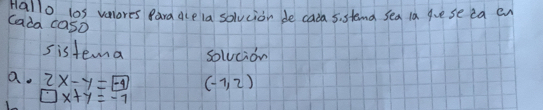 Hallo los valores Para que la solución de cada sistema sea la que se da en
Cada caso
sistema solución
a. 2x-y=[-4] (-1,2)
□x+y=-1